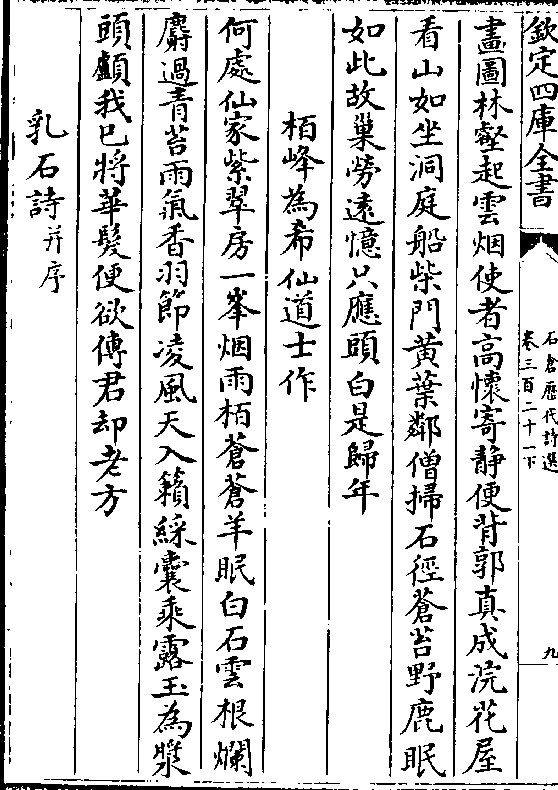 欽定四庫全書
石倉歷代詩選
卷三百二十一下
九
畫圖林壑起雲烟使者高懷寄静便背郭真成浣花屋
看山如坐洞庭船柴門黄葉鄰僧掃石徑蒼苔野鹿眠
如此故巢勞遠憶只應頭白是歸年
栢峰為希仙道士作
何處仙家紫翠房一峯烟雨栢蒼蒼羊眠白石雲根爛
麝過青苔雨氣香羽節凌風天入籟綵囊乘露玉為漿
頭顱我已將華髮便欲傳君却老方
乳石詩并序